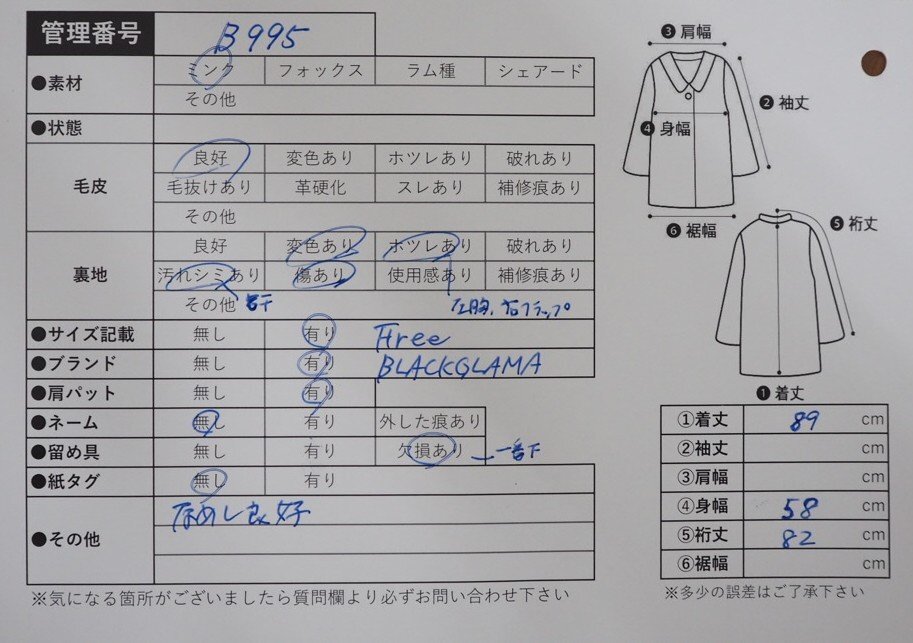 管理番号 B995
●素材 ミンク フォックス ラム種 シェアード
その他
●状態
毛皮 良好 変色あり ホツレあり 破れあり
毛抜けあり 革硬化 スレあり 補修痕あり
その他
裏地 良好 変色あり ホツレあり 破れあり
汚れシミあり 傷あり 使用感あり 補修痕あり
その他 若干 左胸、右フラップ
●サイズ記載 無し 有り Free
●ブランド 無し 有り BLACKGLAMA
●肩パット 無し 有り
●ネーム 無し 有り 外した痕あり
●留め具 無し 有り 欠損あり 一番下
●紙タグ 無し 有り
●その他 なめし良好
※気になる箇所がございましたら質問欄より必ずお問い合わせ下さい
❸肩幅
❷袖丈
❹身幅
❻裾幅
❺裄丈
❶着丈
①着丈 89 cm
②袖丈 cm
③肩幅 cm
④身幅 58 cm
⑤裄丈 82 cm
⑥裾幅 cm
※多少の誤差はご了承下さい